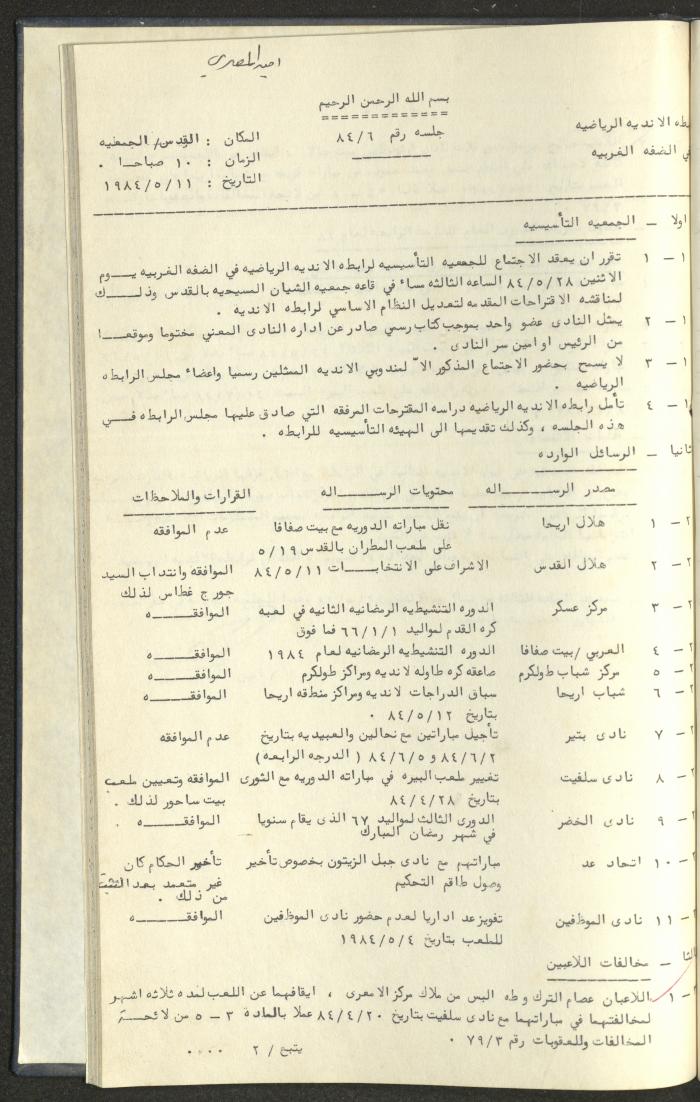 امير المصري
بسم الله الرحمن الرحيم
============
رابطه الانديه الرياضيه
جلسه رقم ٨٤/٦
المكان : القدس/ الجمعيه
في الضفه الغربيه
الزمان : ١٠ صباحا .
التاريخ : ١٩٨٤/٥/١١
اولا - الجمعيه التأسيسيه
١ - ١ تقرر ان يعقد الاجتماع للجمعيه التأسيسيه لرابطه الانديه الرياضيه في الضفه الغربيه يـــوم
الاثنين ٨٤/٥/٢٨ الساعه الثالثه مساء في قاعه جمعيه الشبان المسيحيه بالقدس وذلــــك
لمناقشه الاقتراحات المقدمه لتعديل النظام الاساسي لرابطه الانديه .
١ - ٢ يمثل النادى عضو واحد بموجب كتاب رسمي صادر عن اداره النادى المعني مختوما وموقعـــا
من الرئيس او امين سر النادى .
١ - ٣ لا يسمح بحضور الاجتماع المذكور الاّ لمندوبي الانديه الممثلين رسميا واعضاء مجلس الرابطه
الرياضيه .
١ - ٤ تأمل رابطه الانديه الرياضيه دراسه المقترحات المرفقه التي صادق عليها مجلس الرابطه فـــي
هذه الجلسه ، وكذلك تقديمها الى الهيئه التأسيسيه للرابطه .
ثانيا - الرسائل الوارده
مصدر الرســـــــاله محتويات الرســـــــاله القرارات والملاحظات
٢ - ١ هلال اريحا نقل مباراته الدوريه مع بيت صفافا عدم الموافقه
على ملعب المطران بالقدس ٥/١٩
٢ - ٢ هلال القدس الاشراف على الانتخابـــات ٨٤/٥/١١ الموافقه وانتداب السيد
جورج غطاس لذلك
٢ - ٣ مركز عسكر الدوره التنشيطيه الرمضانيه الثانيه في لعبه الموافقـــــه
كره القدم لمواليد ٦٦/١/١ فما فوق
٢ - ٤ العربي /بيت صفافا الدوره التنشيطيه الرمضانيه لعام ١٩٨٤ الموافقـــــه
٢ - ٥ مركز شباب طولكرم صاعقه كره طاوله لانديه ومراكز طولكرم الموافقـــــه
٢ - ٦ شباب اريحا سباق الدراجات لانديه ومراكز منطقه اريحا الموافقـــــه
بتاريخ ٨٤/٥/١٢ .
٢ - ٧ نادى بتير تأجيل مباراتين مع نحالين والعبيديه بتاريخ عدم الموافقه
٨٤/٦/٢ و ٨٤/٦/٥ ( الدرجه الرابعه )
٢ - ٨ نادى سلفيت تغيير ملعب البيره في مباراته الدوريه مع الثورى الموافقه وتعيين ملعب
بتاريخ ٨٤/٤/٢٨ بيت ساحور لذلك .
٢ - ٩ نادى الخضر الدورى الثالث لمواليد ٦٧ الذى يقام سنويا الموافقـــــه .
في شهر رمضان المبارك
٢ - ١٠ اتحاد عد مباراتهم مع نادى جبل الزيتون بخصوص تأخير تأخير الحكام كان
وصول طاقم التحكيم غير متعمد بعد التثبت
من ذلك .
٢ - ١١ نادى الموظفين تفويز عد اداريا لعدم حضور نادى الموظفين الموافقـــــه
للملعب بتاريخ ١٩٨٤/٥/٤
ثالثا - مخالفات اللاعبين
٣ - ١ اللاعبان عصام الترك وطه البس من ملاك مركز الامعرى ، ايقافهما عن اللعب لمده ثلاثه اشهر
لمخالفتهما في مباراتهما مع نادى سلفيت بتاريخ ٨٤/٤/٢٠ عملا بالماده ٣ - ٥ من لائحـــة
المخالفات وللعقوبات رقم ٧٩/٣ .
يتبع / ٢ ....